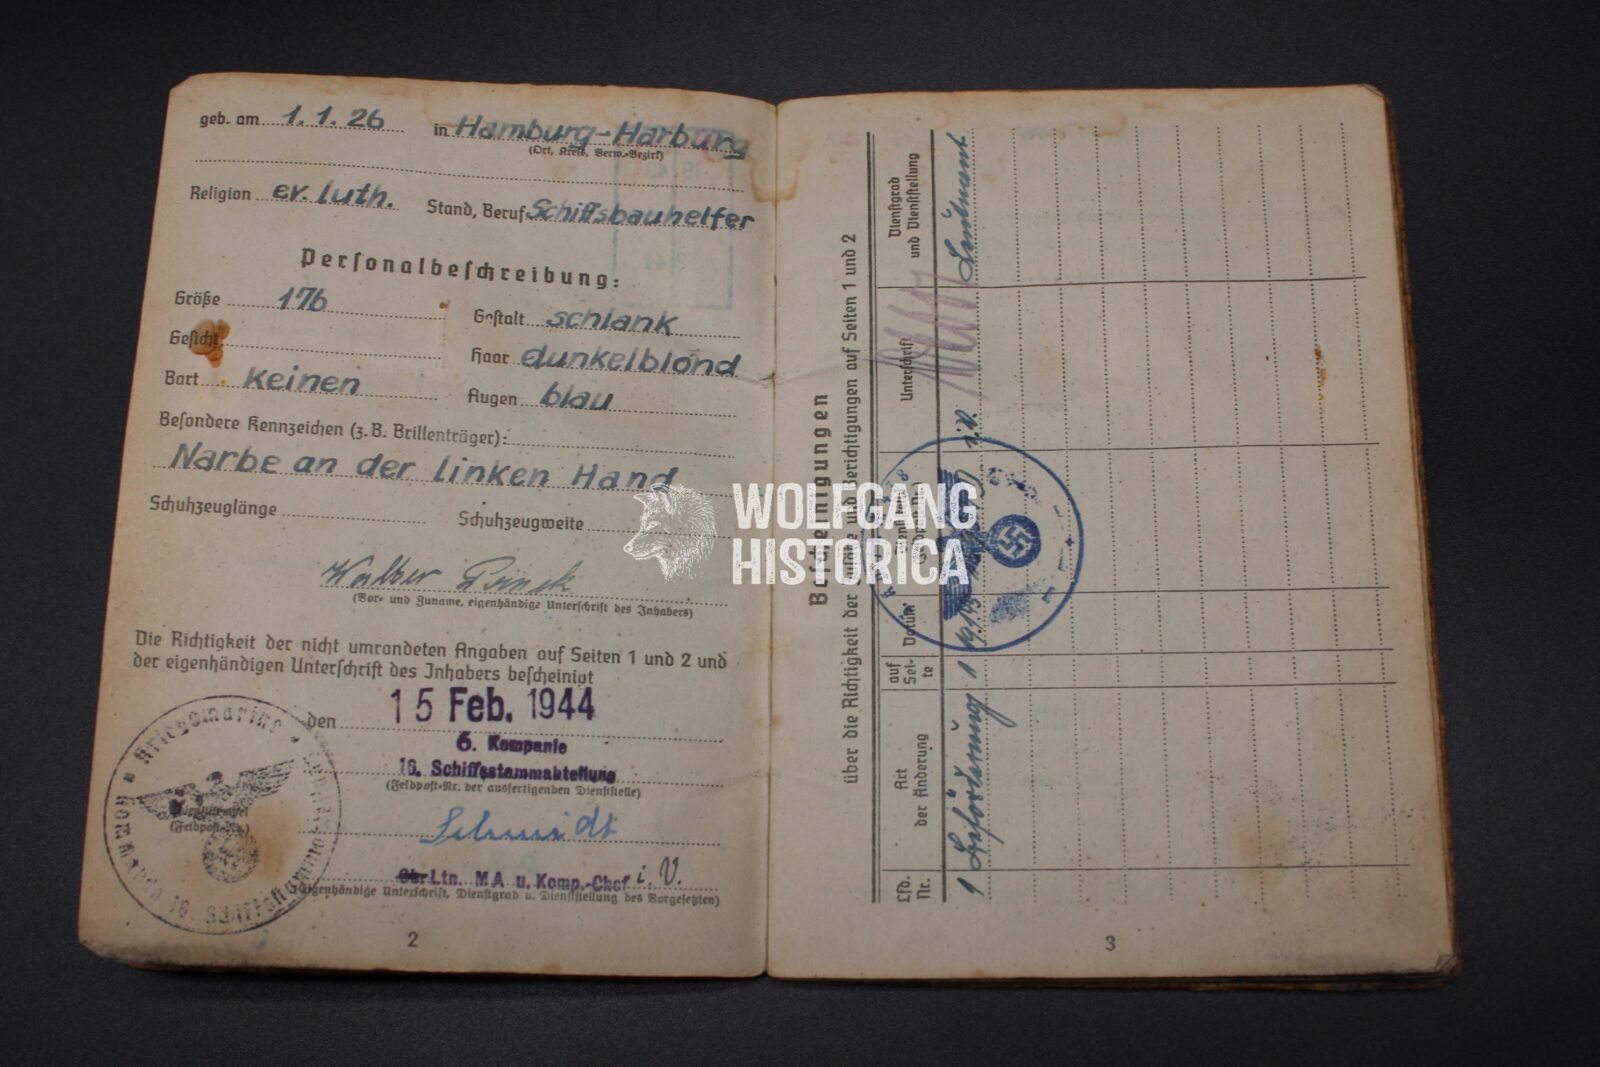 geb. am 1. 1. 26 in Hamburg-Harburg
(Ort, Kreis, Verw.-Bezirk)
Religion ev. luth. Stand, Beruf Schiffsbauhelfer
Personalbeschreibung:
Größe 176 Gestalt schlank
Gesicht Haar dunkelblond
Bart keinen Augen blau
Besondere Kennzeichen (z. B. Brillenträger):
Narbe an der linken Hand
Schuhzeuglänge Schuhzeugweite
Walter
(Vor- und Zuname, eigenhändige Unterschrift des Inhabers)
Die Richtigkeit der nicht umrandeten Angaben auf Seiten 1 und 2 und
der eigenhändigen Unterschrift des Inhabers bescheinigt
den 15 Feb. 1944
6. Kompanie
16. Schiffsstammabteilung
(Feldpost-Nr. der ausfertigenden Dienststelle)
Schmidt
Obr.Ltn. MA u. Komp.-Chef i. V.
(Eigenhändige Unterschrift, Dienstgrad u. Dienststellung des Vorgesetzten)
Kriegsmarine
(Feldpost-Nr.)
2
WOLFGANG
HISTORICA
Bescheinigungen
über die Richtigkeit der Zusätze und Berichtigungen auf Seiten 1 und 2
Lfd. Nr.
Art der Änderung
auf Sei- te
Datum
Unterschrift
Dienstgrad und Dienststellung
1 Beförderung 1 i. V. Leutnant
3